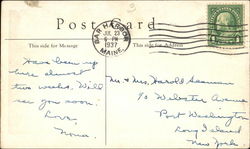 Post Card
BAR HARBOR
JUL 23
6 PM
1937
MAINE
This side for Message
This side for Address
Have been up
here almost
two weeks. Will
see you soon.
Love,
Nona.
Mr. & Mrs. Harold Seaman
Webster Avenue
Port Washington
Long Island
New York